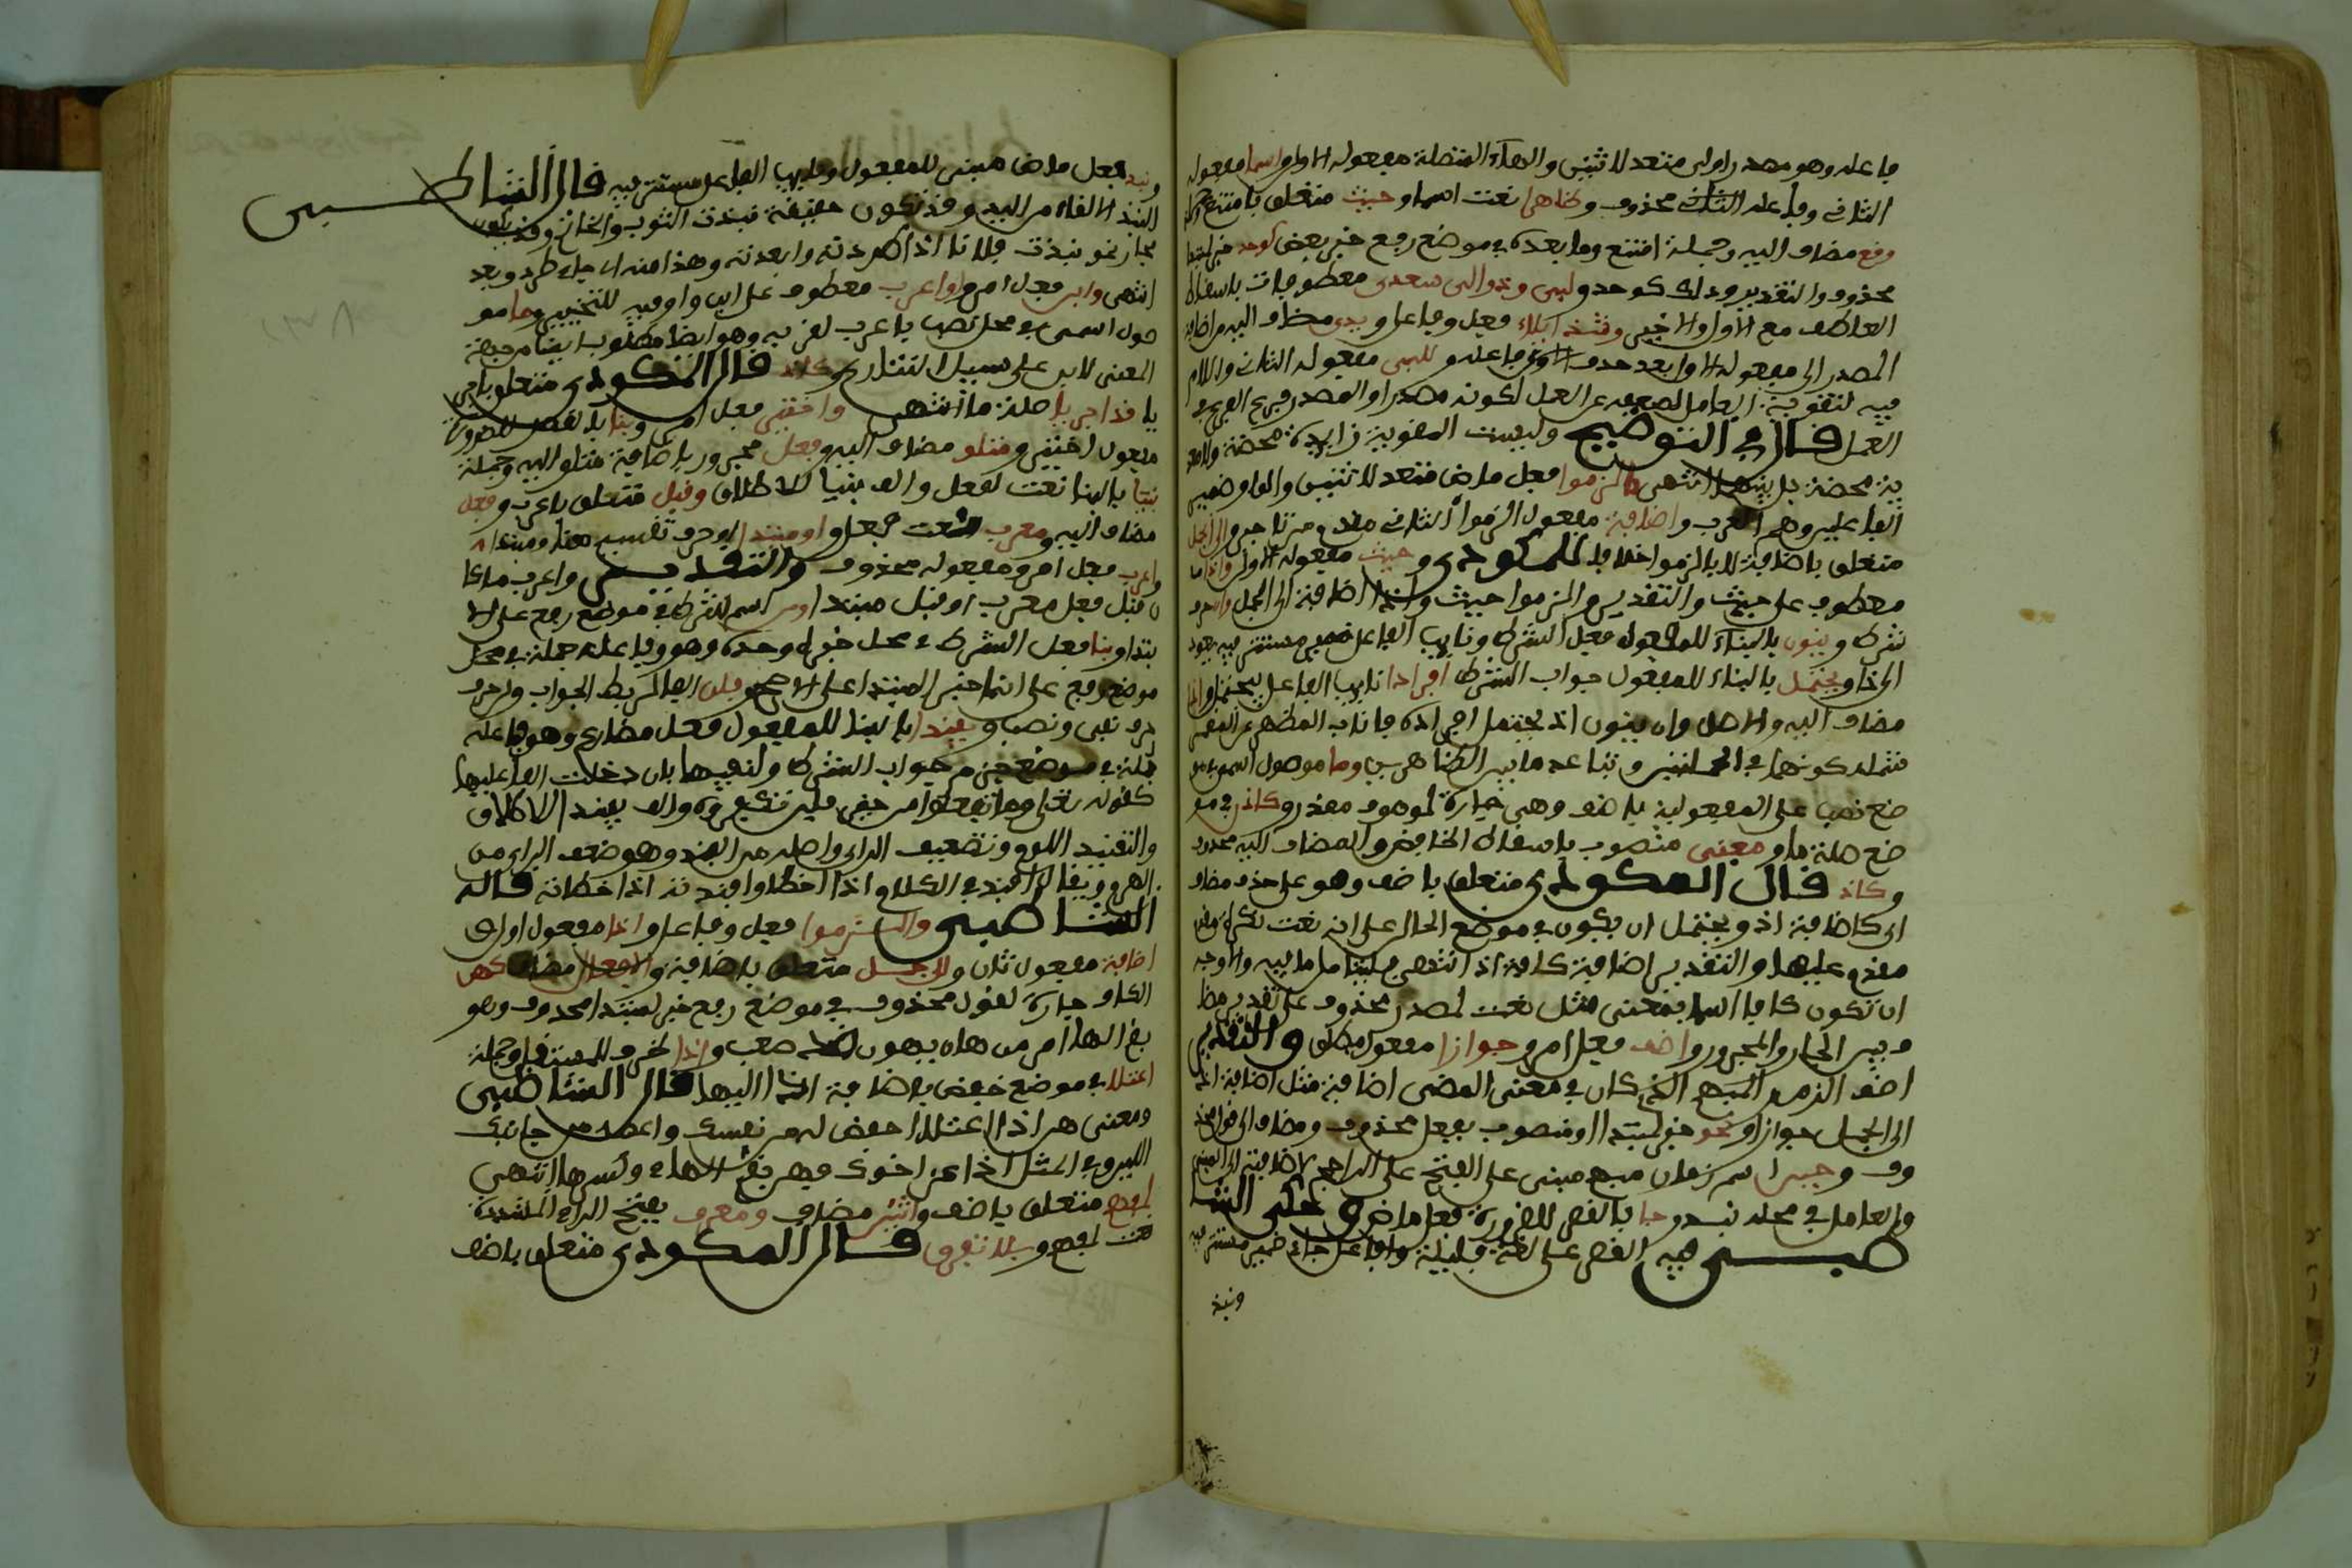 فاعله وهو مصدر اولى متعد لاثنين والهاء المتصلة مفعوله الاول واسما مفعوله
الثاني وفاعله الثاني محذوف وظاهرا نعت اسما وحيث متعلق بامتنع
وقع مضاف اليه وجملة امتنع وما بعده في موضع رفع خبر بعض كوحد خبر لمبتدا
محذوف والتقدير وذلك كوحد ولبى ودوالى سعدى معطوفات باسقاط
العاطف مع الاول والاخير وشذ ايلاء فعل وفاعل ويدى مضاف اليه من اضافة
المصدر الى مفعوله الاول بعد حذف فاعله وللبى مفعوله الثاني واللام
فيه لتقوية العامل لضعفه عن العمل لكونه مصدرا والمصدر فرع الفعل في
العمل قال في التوضيح وليست المقوية زايدة محضة ولا معد
ية محضة بل بينهما انتهى والزموا فعل ماض متعد لاثنين والواو ضمير
الفاعلين وهم العرب واضافة مفعول الزموا الثاني مقدم من تاخر والى الجمل
متعلق باضافة لا بالزموا خلافا للمكودي وحيث مفعوله الاول واذا
معطوف على حيث والتقدير والزموا حيث واذا اضافة الى الجمل وان حرف
شرط وينون بالبناء للمفعول فعل الشرط ونايب الفاعل ضمير مستتر فيه يعود
الى اذ ويحتمل بالبناء للمفعول جواب الشرط افراد نايب الفاعل بيحتمل واذ
مضاف اليه والاصل وان ينون اذ يحتمل افراده فاناب المظهر عن المضمر
فتمله كونهما في جملتين وتباعد ما بين الظاهرين وما موصول اسمي في مو
ضع نصب على المفعولية باضف وهي عبارة لموصوف مقدر وكاذ في مو
ضع صلة ما ومعنى منصوب باسقاط الخافض والمضاف اليه محذوف
وكاذ قال المكودي متعلق باضف وهو على حذف مضاف
اى كاضافة اذ ويحتمل ان يكون في موضع الحال على انه نعت نكرة
مقدم عليها والتقدير اضافة كاضافة اذ انتهى فليتامل ما فيه والاوجه
ان تكون كاف اسما بمعنى مثل نعت لمصدر محذوف على تقدير مضا
ف بين الجار والمجرور واضف فعل امر وجوازا مفعول مطلق والتقدير
اضف الزمن المبهم الذي كان في معنى المضي اضافة مثل اضافة اذ
الى الجمل جوازا ونحو خبر لمبتدا او منصوب بفعل محذوف ومضاف الى قول محذ
وف وحين اسم زمان مبهم مبني على الفتح على الراجح لاضافته الى المبني
والعامل في محله نبذ وجا بالقصر للضرورة فعل ماض وحكى الشا
طبي فيه القصر على لغة قليلة وفاعل جاء ضمير مستتر فيه
ونبذ
ونبذ فعل ماض مبني للمفعول ونايب الفاعل مستتر فيه قال الشاطبي
النبذ الالقاء من اليد وقد تكون حقيقة نبذت الثوب والخاتم وقد يكون
مجازا نحو نبذت فلانا اذا طردته وابعدته وهذا منه اى جاء طرد وبعد
انتهى وابن فعل امر واو اعرب معطوف على ابن واو فيه للتخيير وما مو
صول اسمي في محل نصب باعرب لقربه وهو ايضا مطلوب ابن من جهة
المعنى لابن على سبيل التنازع وكاذ قال المكودي متعلق باجر
يا قد اجريا صلة ما انتهى واختر فعل امر وبنا بالقصر للضرورة
مفعول اختر ومتلو مضاف اليه وفعل مجرور باضافة متلو اليه وجملة
بنيا بالبناء نعت لفعل والف بنيا للاطلاق وقبل متعلق باعرب وفعل
مضاف اليه ومعرب نعت فعل واو مبتدا او حرف تقسيم ومبتدا
واعرب فعل امر ومفعوله محذوف والتقدير واعرب ما كا
ن قبل فعل معرب او قبل مبتدا ومن اسم شرط في موضع رفع على الا
بتدا وبنا فعل الشرط في محل خبره وحده وهو وفاعله جملة في محل
موضع رفع على انها خبر المبتدا على الاصح وفلن الفا لربط الجواب ولن حرف
حرف نفي ونصب ويفندا بالبناء للمفعول فعل مضارع وهو وفاعله
جملة في موضع جزم جواب الشرط ولنفيها بلن دخلت الفا عليها
كقوله تعالى وما تفعلوا من خير فلن تكفروه والف يفندا للاطلاق
والتفنيد اللوم وتضعيف الراى واصله من الفند وهو ضعف الراى من
الهرم ويقال افند في الكلام اذا اخطا وافندته اذا خطاته قاله
الشاطبي والزموا فعل وفاعل واذا مفعول اول
اضافة مفعول ثان والى جمل متعلق باضافة والافعال مضاف كهن
الكاف جارة لقول محذوف في موضع رفع خبر لمبتدا محذوف وهن
بضم الها امر من هان يهون ضد صعب واذا ظرف للمستقبل وجملة
اعتلا في موضع خفض باضافة اذا اليها قال الشاطبي
ومعنى هن اذا اعتلا اخفض له من نفسك واعطه من جانبك
اللين وفي المثل اذا عز اخوك فهن بضم الهاء وكسرها انتهى
لمفهم متعلق باضف واثنين مضاف ومعرف بفتح الراء المشددة
نعت لمفهم وبلا تفرق قال المكودي متعلق باضف